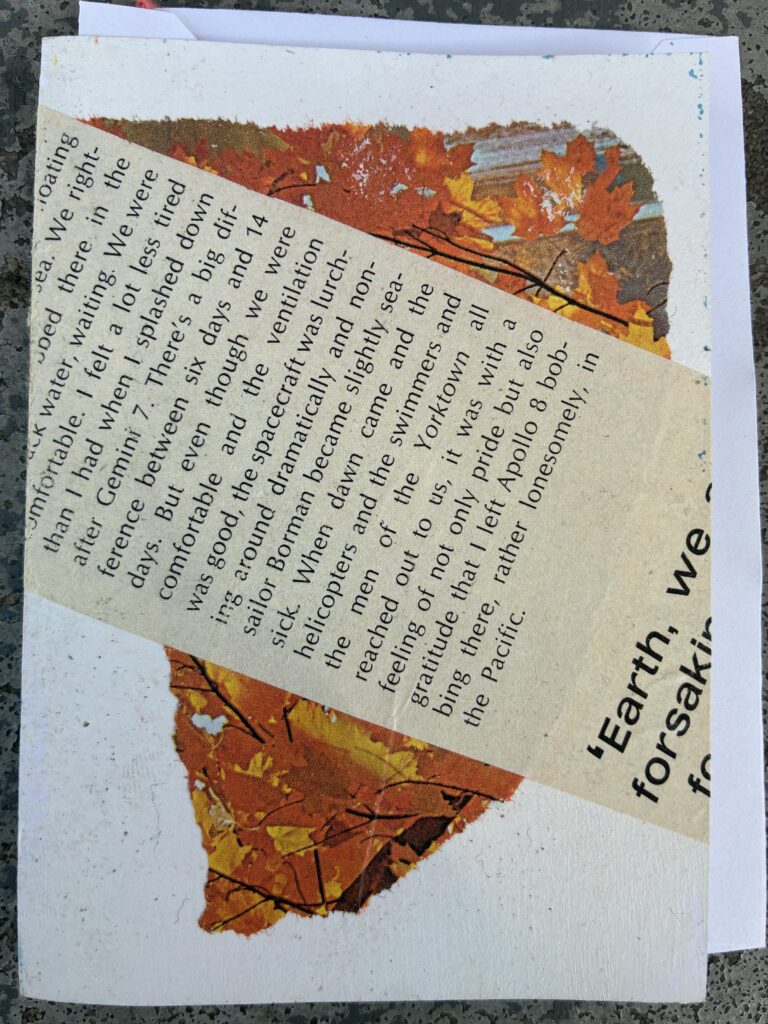 sea. We right-
there in the
water, waiting. We were
than I had when I splashed down
after Gemini 7. There's a big dif-
ference between six days and 14
days. But even though we were
comfortable and the ventilation
was good, the spacecraft was lurch-
ing around dramatically and non-
sailor Borman became slightly sea-
sick. When dawn came and the
helicopters and the swimmers and
the men of the Yorktown all
reached out to us, it was with a
feeling of not only pride but also
gratitude that I left Apollo 8 bob-
bing there, rather lonesomely, in
the Pacific.
'Earth, we